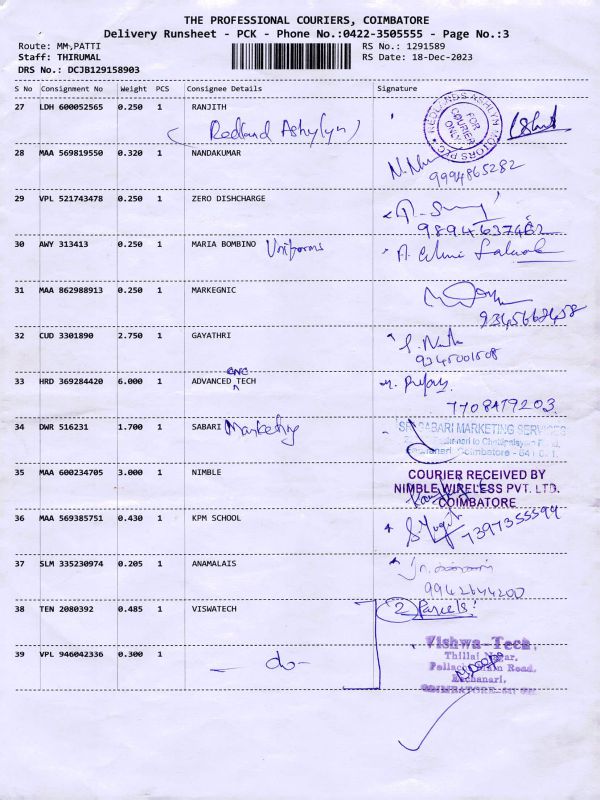 THE PROFESSIONAL COURIERS, COIMBATORE
Delivery Runsheet - PCK - Phone No.:0422-3505555 - Page No.:3
Route: MM,PATTI RS No.: 1291589
Staff: THIRUMAL RS Date: 18-Dec-2023
DRS No.: DCJB129158903
S No Consignment No Weight PCS Consignee Details Signature
27 LDH 600052565 0.250 1 RANJITH
(Redland Ashylyn)
REDLANDS ASHLYN MOTORS PLC
FOR COURIER ONLY
28 MAA 569819550 0.320 1 NANDAKUMAR
9994865282
29 VPL 521743478 0.250 1 ZERO DISHCHARGE
9894637482
30 AWY 313413 0.250 1 MARIA BOMBINO Uniforms
31 MAA 862988913 0.250 1 MARKEGNIC
9345668458
32 CUD 3301890 2.750 1 GAYATHRI
9345001508
33 HRD 369284420 6.000 1 ADVANCED CNC TECH
7708479203
34 DWR 516231 1.700 1 SABARI Marketing
SRI SABARI MARKETING SERVICES
Coimbatore - 641 021.
35 MAA 600234705 3.000 1 NIMBLE
COURIER RECEIVED BY
NIMBLE WIRELESS PVT. LTD.
COIMBATORE
36 MAA 569385751 0.430 1 KPM SCHOOL
7397355594
37 SLM 335230974 0.205 1 ANAMALAIS
9942644200
38 TEN 2080392 0.485 1 VISWATECH
2 Parcels!
Vishwa Tech,
Thillai Nagar,
Pollachi Main Road,
Eachanari,
COIMBATORE-641
39 VPL 946042336 0.300 1
- do -